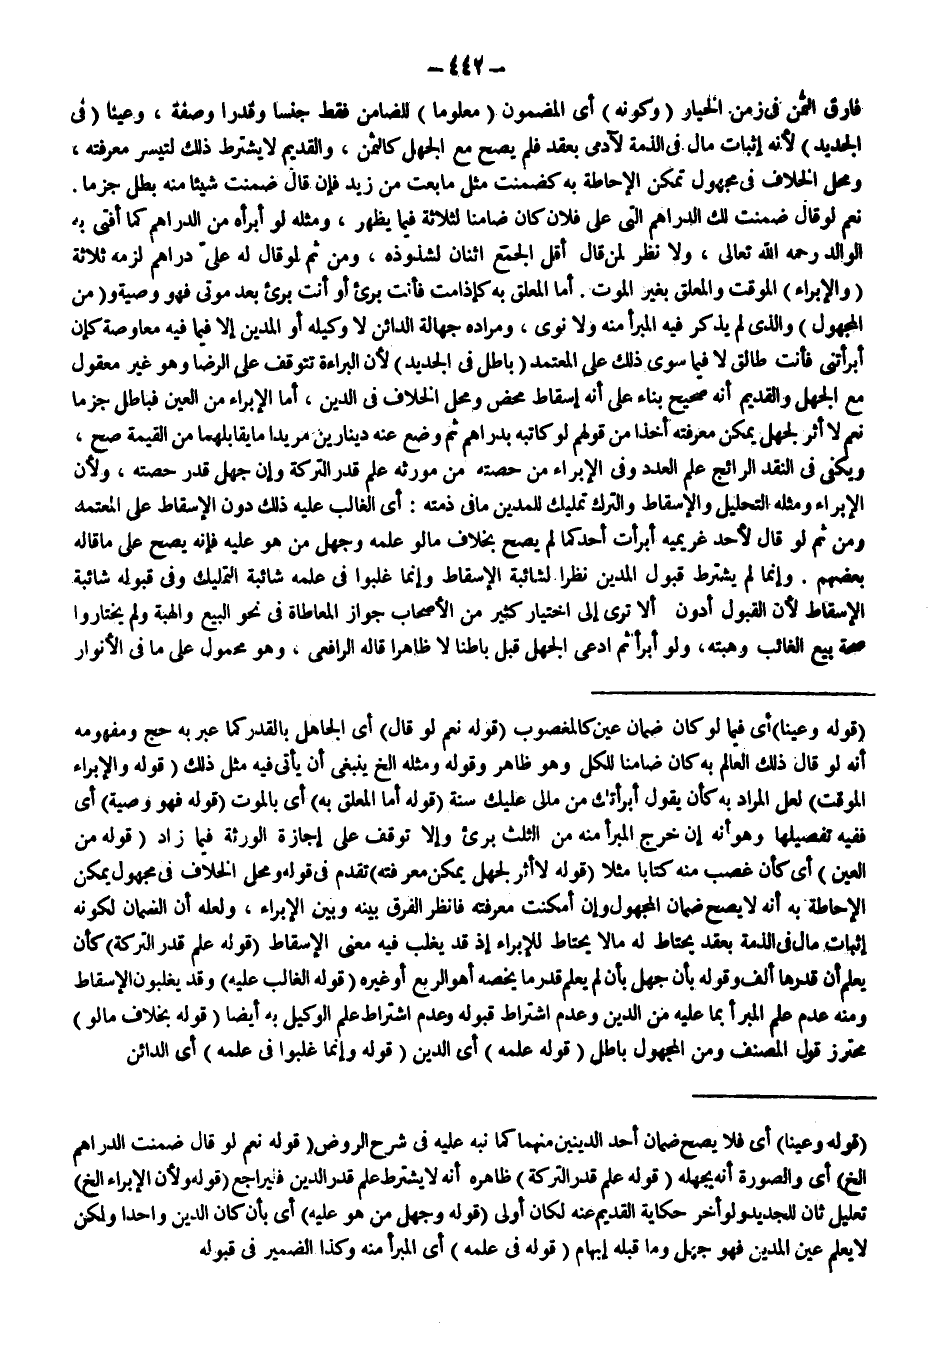 - ٤٤٢ -
فارق الثمن فى زمن الخيار ( وكونه ) أى المضمون ( معلوما ) للضامن فقط جنسا وقدرا وصفة ، وعينا ( فى
الجديد ) لأنه إثبات مال فى الذمة لآدمى بعقد فلم يصح مع الجهل كالثمن ، والقديم لايشترط ذلك لتيسر معرفته ،
ومحل الخلاف فى مجهول تمكن الإحاطة به كضمنت مثل مابعت من زيد فإن قال ضمنت شيئا منه بطل جزما .
نعم لوقال ضمنت لك الدراهم التى على فلان كان ضامنا لثلاثة فيما يظهر ، ومثله لو أبرأه من الدراهم كما أفتى به
الوالد رحمه الله تعالى ، ولا نظر لمن قال أقل الجمع اثنان لشذوذه ، ومن ثم لوقال له علىّ دراهم لزمه ثلاثة
( والإبراء ) الموقت والمعلق بغير الموت . أما المعلق به كإذامت فأنت برئ أو أنت برئ بعد موتى فهو وصية و( من
المجهول ) والذى لم يذكر فيه المبرأ منه ولا نوى ، ومراده جهالة الدائن لا وكيله أو المدين إلا فيما فيه معاوضة كإن
أبرأتنى فأنت طالق لا فيما سوى ذلك على المعتمد ( باطل فى الجديد ) لأن البراءة تتوقف على الرضا وهو غير معقول
مع الجهل والقديم أنه صحيح بناء على أنه إسقاط محض ومحل الخلاف فى الدين ، أما الإبراء من العين فباطل جزما
نعم لا أثر لجهل يمكن معرفته أخذا من قولهم لو كاتبه بدراهم ثم وضع عنه دينارين مريدا مايقابلهما من القيمة صح ،
ويكفى فى النقد الرائج علم العدد وفى الإبراء من حصته من مورثه علم قدر التركة وإن جهل قدر حصته ، ولأن
الإبراء ومثله التحليل والإسقاط والترك تمليك للمدين مافى ذمته : أى الغالب عليه ذلك دون الإسقاط على المعتمد
ومن ثم لو قال لأحد غريميه أبرأت أحدكما لم يصح بخلاف مالو علمه وجهل من هو عليه فإنه يصح على ماقاله
بعضهم . وإنما لم يشترط قبول المدين نظرا لشائبة الإسقاط وإنما غلبوا فى علمه شائبة التمليك وفى قبوله شائبة
الإسقاط لأن القبول أدون ألا ترى إلى اختيار كثير من الأصحاب جواز المعاطاة فى نحو البيع والهبة ولم يختاروا
صحة بيع الغائب وهبته، ولو أبرأ ثم ادعى الجهل قبل باطنا لا ظاهرا قاله الرافعى ، وهو محمول على ما فى الأنوار
(قوله وعينا) أى فيما لو كان ضمان عين كالمغصوب (قوله نعم لو قال) أى الجاهل بالقدر كما عبر به حج ومفهومه
أنه لو قال ذلك العالم به كان ضامنا للكل وهو ظاهر وقوله ومثله الخ ينبغى أن يأتى فيه مثل ذلك ( قوله والإبراء
الموقت) لعل المراد به كأن يقول أبرأتك من مالى عليك سنة (قوله أما المعلق به) أى بالموت (قوله فهو وصية) أى
ففيه تفصيلها وهو أنه إن خرج المبرأ منه من الثلث برئ وإلا توقف على إجازة الورثة فيما زاد ( قوله من
العين ) أى كأن غصب منه كتابا مثلا (قوله لاأثر لجهل يمكن معرفته) تقدم فى قوله ومحل الخلاف فى مجهول يمكن
الإحاطة به أنه لايصح ضمان المجهول وإن أمكنت معرفته فانظر الفرق بينه وبين الإبراء ، ولعله أن الضمان لكونه
إثبات مال فى الذمة بعقد يحتاط له مالا يحتاط للإبراء إذ قد يغلب فيه معنى الإسقاط (قوله علم قدر التركة) كأن
يعلم أن قدرها ألف وقوله بأن جهل بأن لم يعلم قدر ما يخصه أهو الربع أو غيره ( قوله الغالب عليه) وقد يغلبون الإسقاط
ومنه عدم علم المبرأ بما عليه من الدين وعدم اشتراط قبوله وعدم اشتراط علم الوكيل به أيضا ( قوله بخلاف مالو )
محترز قول المصنف ومن المجهول باطل ( قوله علمه ) أى الدين ( قوله وإنما غلبوا فى علمه ) أى الدائن
(قوله وعينا) أى فلا يصح ضمان أحد الدينين منهما كما نبه عليه فى شرح الروض( قوله نعم لو قال ضمنت الدراهم
الخ) أى والصورة أنه يجهله ( قوله علم قدر التركة ) ظاهره أنه لايشترط علم قدر الدين فليراجع (قوله ولأن الإبراء الخ)
تعليل ثان للجديد ولو أخر حكاية القديم عنه لكان أولى (قوله وجهل من هو عليه) أى بأن كان الدين واحدا ولكن
لايعلم عين المدين فهو جهل وما قبله إبهام ( قوله فى علمه ) أى المبرأ منه وكذا الضمير فى قبوله